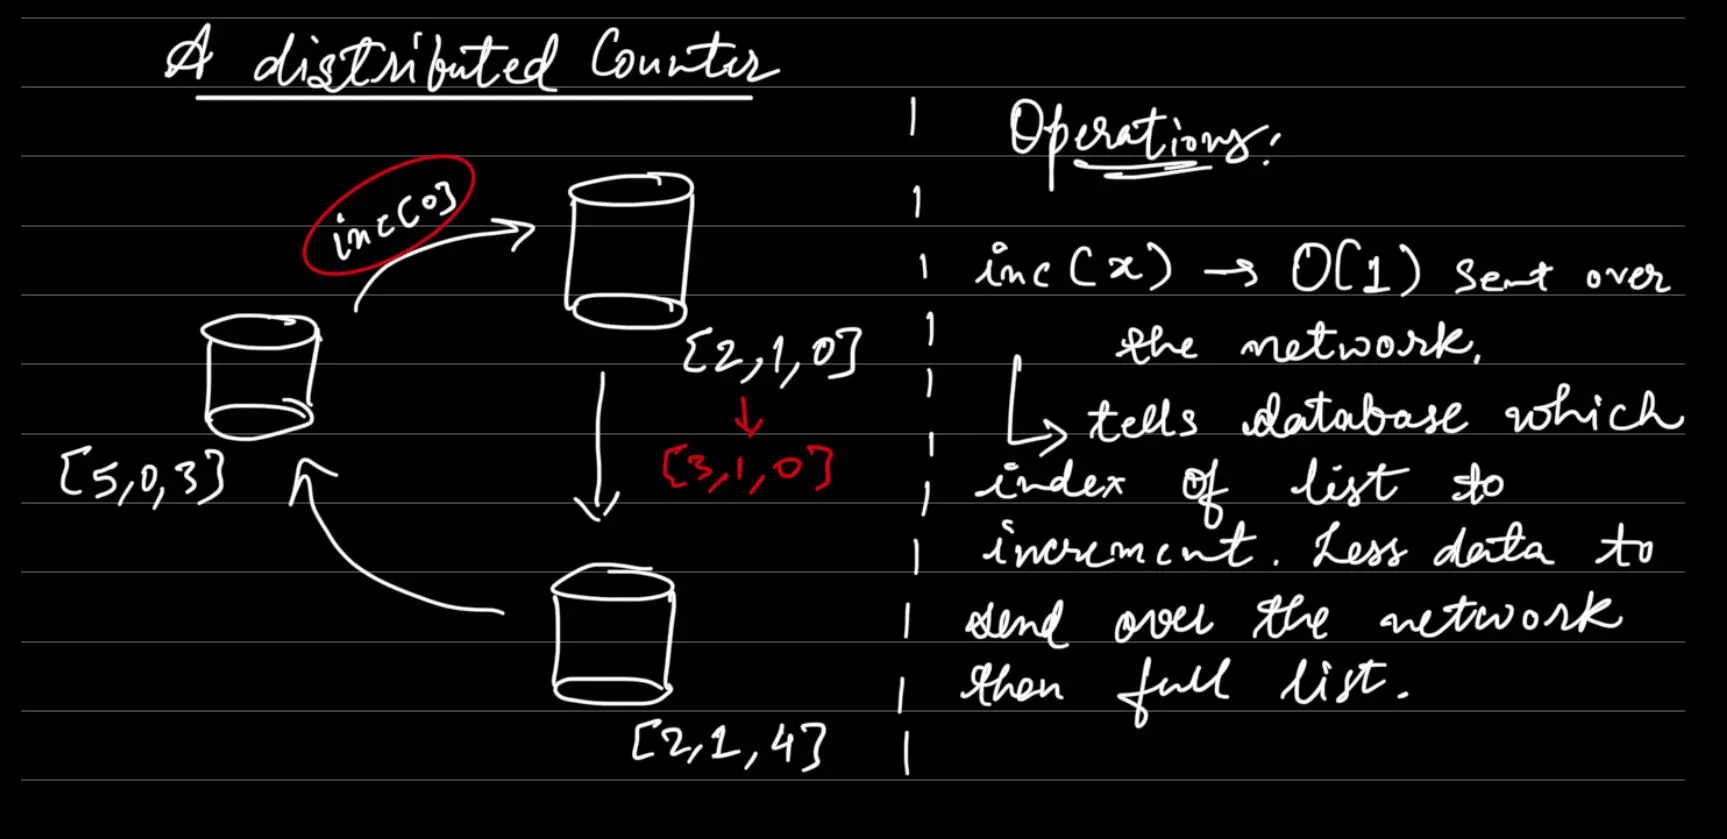 A distributed Counter
inc[0]
[2,1,0]
[3,1,0]
[5,0,3]
[2,1,4]
Operations:
inc(x) → O(1) sent over
the network.
tells database which
index of list to
increment. Less data to
send over the network
then full list.